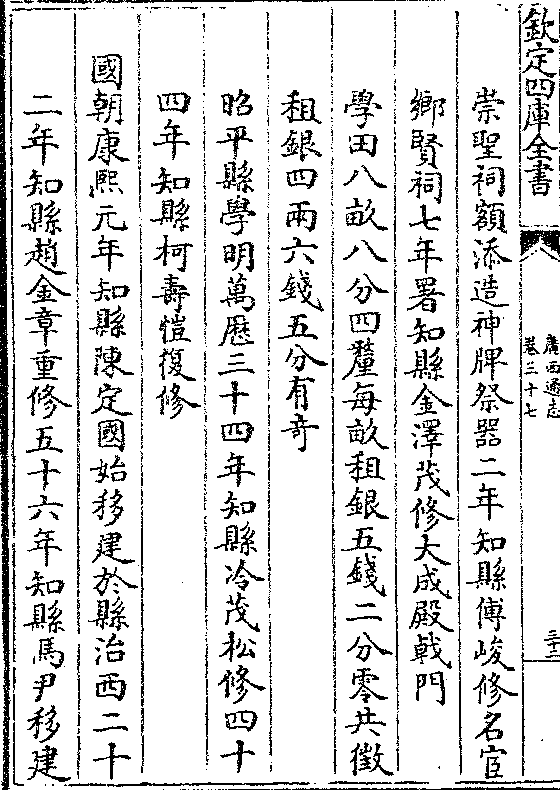 欽定四庫全書
廣西通志
卷三十七
三十二
崇聖祠額添造神牌祭器二年知縣傅峻修名宦
鄉賢祠七年署知縣金澤茂修大成殿戟門
學田八畝八分四釐每畝租銀五錢二分零共徵
租銀四兩六錢五分有奇
昭平縣學明萬厯三十四年知縣冷茂松修四十
四年知縣柯壽愷復修
國朝康熙元年知縣陳定國始移建於縣治西二十
二年知縣趙金章重修五十六年知縣馬尹移建